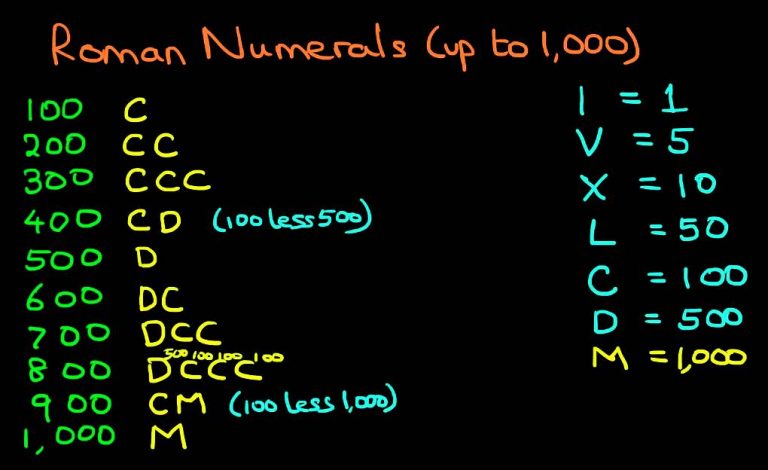 Roman Numerals (up to 1,000)
100 C
200 CC
300 CCC
400 CD (100 less 500)
500 D
600 DC
700 DCC
500 100 100 100
800 DCCC
900 CM (100 less 1,000)
1,000 M
I = 1
V = 5
X = 10
L = 50
C = 100
D = 500
M = 1,000